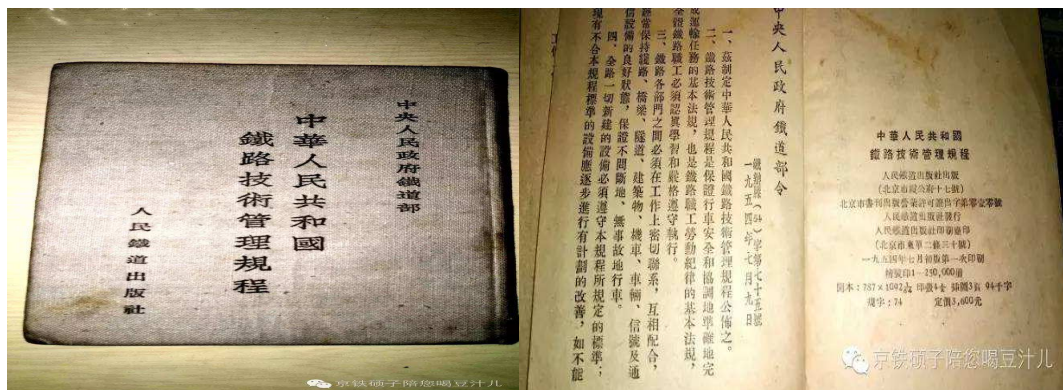 中央人民政府鐵道部
中華人民共和國
鐵路技術管理規程
人民鐵道出版社
京铁硕子陪您喝豆汁儿
中央人民政府鐵道部令
一九五四年七月九日
一、茲制定中華人民共和國鐵路技術管理規程公佈之。
二、鐵路技術管理規程是保證行車安全和協調地準確地完
成運輸任務的基本法規，也是鐵路職工勞動紀律的基本法規，
全體鐵路職工必須認眞學習和嚴格遵守執行。
三、鐵路各部門之間必須在工作上密切聯系，互相配合，
經常保持綫路、橋樑、隧道、建築物、機車、車輛、信號及通
信設備的良好狀態，保證不間斷地、無事故地行車。
四、全路一切新建的設備必須遵守本規程所規定的標準；
現有不合本規程標準的設備應逐步進行有計劃的改善，如不能
中華人民共和國
鐵路技術管理規程
人民鐵道出版社出版
(北京市霞公府十七號)
北京市書刊出版營業許可證出字第零壹零號
人民鐵道出版社發行
人民鐵道出版社印刷廠印
一九五四年七月初版第一次印刷
開本：787×1092 印張 94千字
定價3,600元
京铁硕子陪您喝豆汁儿